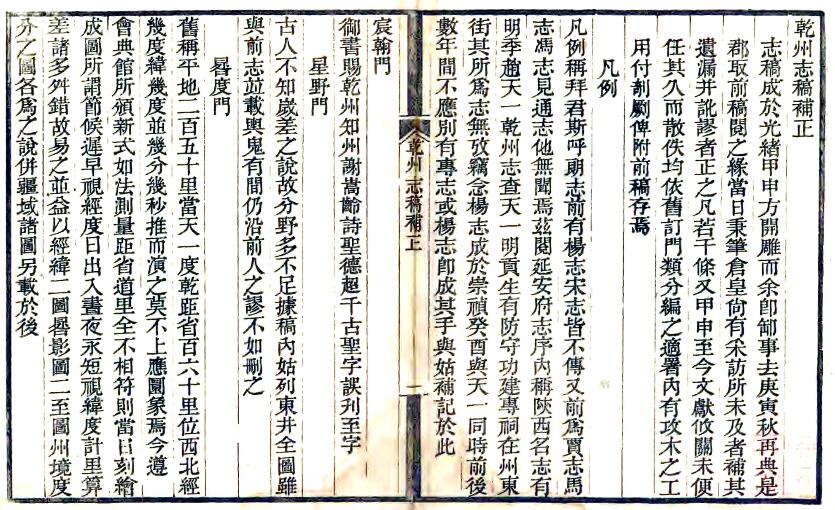 乾州志稿補正
志稿成於光緒甲申方開雕而余卽卸事去庚寅秋再典是
郡取前稿閱之緣當日秉筆倉皇尙有采訪所未及者補其
遺漏并訛謬者正之凡若干條又甲申至今文獻攸關未便
任其久而散佚均依舊訂門類分編之適署內有攻木之工
用付剞劂俾附前稿存焉
凡例
凡例稱拜君斯呼朝志前有楊志宋志皆不傳又前爲賈志馬
志馮志見通志他無聞焉茲閱延安府志序內稱陝西名志有
明季趙天一乾州志查天一明貢生有防守功建專祠在州東
街其所爲志無攷竊念楊志成於崇禎癸酉與天一同時前後
數年間不應別有專志或楊志卽成其手與姑補記於此
乾州志稿補正
一
宸翰門
御書賜乾州知州謝嵩齡詩聖德超千古聖字誤刋至字
星野門
古人不知歲差之說故分野多不足據稿內姑列東井全圖雖
與前志並載輿鬼有間仍沿前人之謬不如刪之
晷度門
舊稱平地二百五十里當天一度乾距省百六十里位西北經
幾度緯幾度並幾分幾秒推而演之莫不上應圜象焉今遵
會典館所頒新式如法測量距省道里全不相符則當日刻繪
成圖所謂節候遲早視經度日出入晝夜永短視緯度計里算
差諸多舛錯故易之並益以經緯二圖晷影圖二至圖州境度
分之圖各爲之說併疆域諸圖另載於後